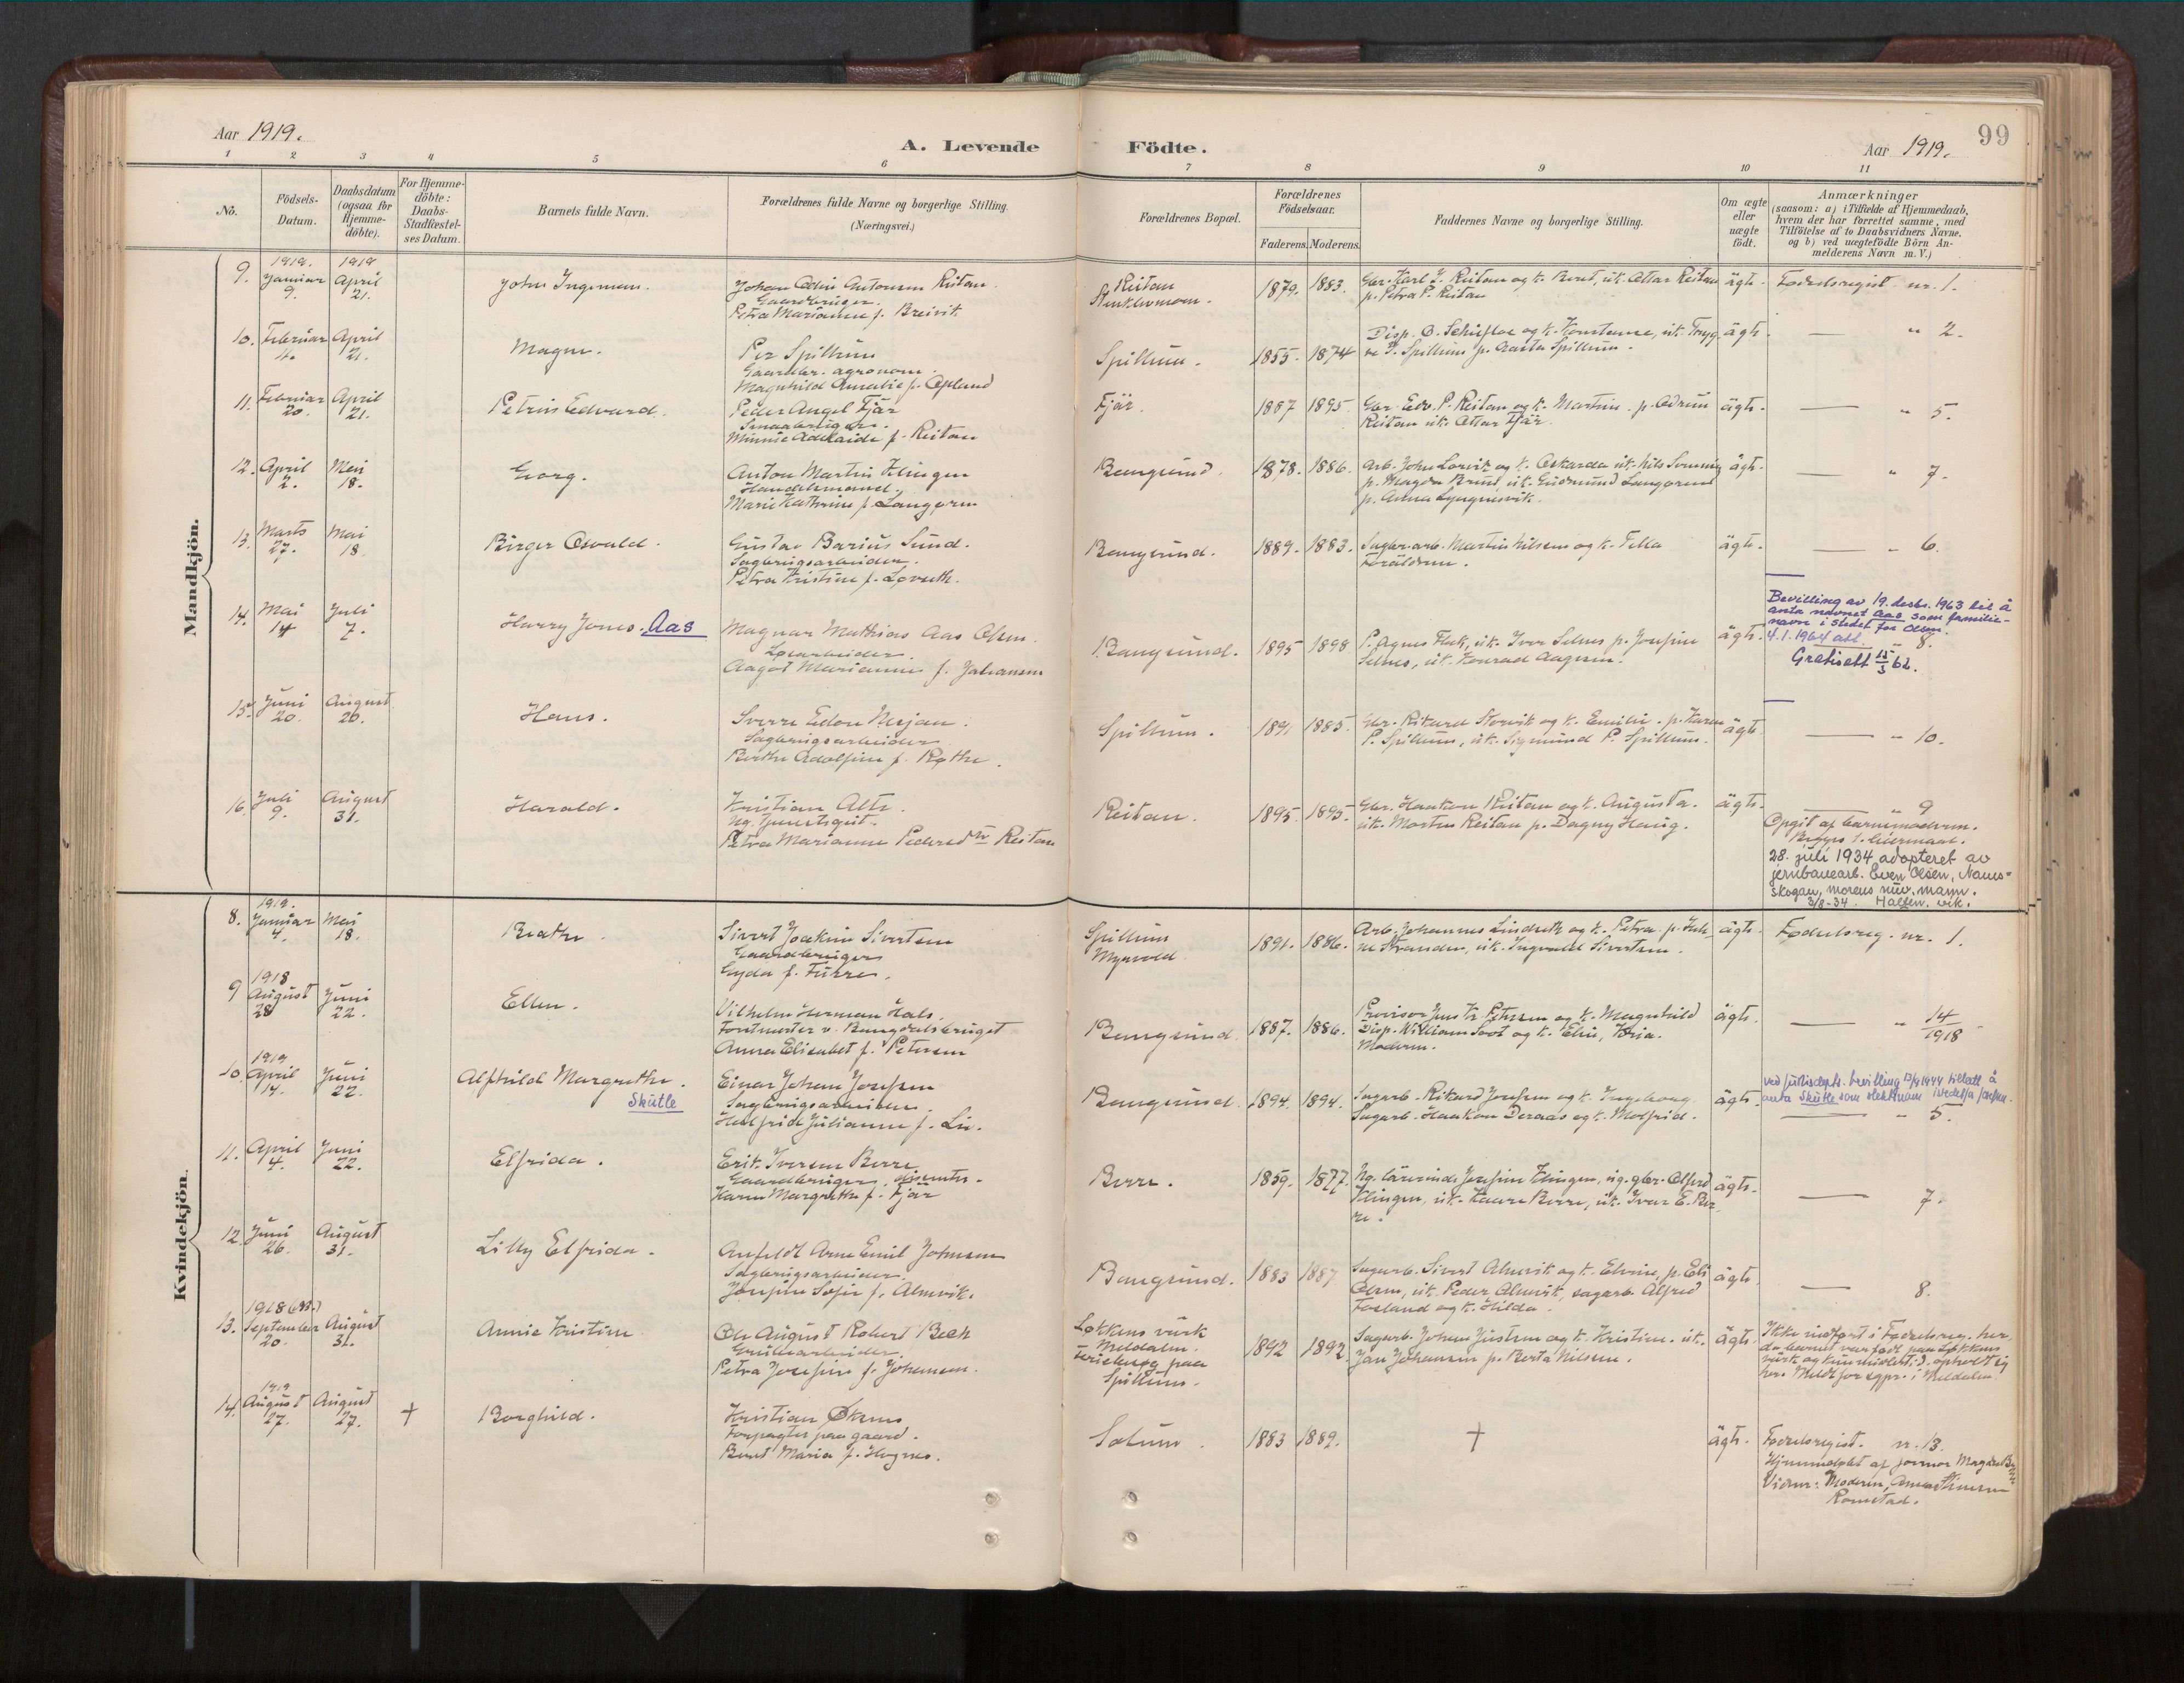 Aar 1919.
A. Levende Födte.
99
Aar 1919.
1 2 3 4 5 6 7 8 9 10 11
No.
Födsels-
Datum.
Daabsdatum
(ogsaa for
Hjemme-
döbte).
For Hjemme-
döbte:
Daabs-
Stadfæstel-
ses Datum.
Barnets fulde Navn.
Forældrenes fulde Navne og borgerlige Stilling.
(Næringsvei.)
Forældrenes Bopæl.
Forældrenes
Födselsaar.
Faderens. Moderens.
Faddernes Navne og borgerlige Stilling.
Om ægte
eller
uægte
födt.
Anmærkninger
(saasom: a) i Tilfælde af Hjemmedaab,
hvem der har forrettet samme, med
Tilföielse af to Daabsvidners Navne,
og b) ved uægtefödte Börn An-
melderens Navn m. V.)
Mandkjön.
9. 1919. Januar 9. 1919 April 21.
John Ingeman.
Johan Odin Antonsen Reitan.
Gaardbruger.
Petra Marianne f. Breivik
Reitan
1879. 1883.
Gbr. Karl J. Reitan og k. Beret, uk. Ottar Reitan
p. Petra P. Reitan
ägte.
Fødselsregist. nr. 1.
10. Februar 4. April 21.
Magne.
Per Spillum
Gaardbr. agronom.
Magnhild Amalie f. Opland
Spillum.
1855. 1874
Disp. O. Schiefloe og k. Konstanse, uk. Tryg-
ve P. Spillum p. Aasta Spillum.
ägte.
— " 2.
11. Februar 20. April 21.
Petrus Edvard.
Peder Angel Fjär
Smaabruger.
Minnie Adelaide f. Reitan
Fjär.
1887 1895.
Gbr. Edv. P. Reitan og k. Martine. p. Odrun
Reitan uk. Ottar Fjär.
ägte.
— " 5.
12. April 2. Mai 18.
Georg.
Anton Martin Klingen
Handelsmand.
Marie Kathrine f. Langørn
Bangsund.
1878. 1886.
Arb. John Lorvik og k. Oskarda uk. Nils Sømning
p. Magda Bruul, uk. Gudmund Langørend
p. Anna Lyngnesvik.
ägte.
— " 7.
13. Marts 27. Mai 18.
Birger Osvald.
Gustav Barius Sund.
Sagbrugsarbeider.
Petra Kristine f. Løvseth.
Bangsund.
1889. 1883.
Sagbr.arb. Martin Nilsen og k. Tella
Foräldrene.
ägte.
— " 6.
14. Mai 14 Juli 7.
Harry Jones. Aas
Magnar Mathias Aas Olsen.
Løsarbeider.
Aagot Marianne f. Johansen
Bangsund.
1895 1898
P. Agnes Flak, uk. Iver Selnes p. Josefine
Selnes, uk. Konrad Aagesen.
ägte.
Bevilling av 19. desbr. 1963 til å
anta navnet Aas som familie-
navn i stedet for Olsen.
4.1.1964
— " 8.
Gratisatt 15/3 62.
15. Juni 20. August 20.
Hans.
Sverre Edon Nesjan.
Sagbrugsarbeider
Berthe Adolfine f. Røthe.
Spillum.
1891 1885.
Gbr. Rikard Storvik og k. Emilie. p. Karen
P. Spillum, uk. Sigmund P. Spillum.
ägte.
— " 10.
16. Juli 9. August 31.
Harald.
Kristian Alte.
Petra Marianne Pedersdtr Reitan
Reitan.
1895. 1895.
Gbr. Haakon Reitan og k. Augusta.
uk. Morten Reitan p. Dagny Haug.
ägte.
— 9
Opgit af barnemoderen.
28. juli 1934 adopteret av
jernbanearb. Even Olsen, Nams-
skogan, morens nuv. mann.
3/8-34. Halsen. vik.
Kvindekjön.
8. 1919. Januar 4. Mai 18.
Beathe.
Sivert Joakim Sivertsen
Gaardbruger
Gyda f. Furre.
Spillum
Myrvold
1891. 1886.
Arb. Johannes Lindseth og k. Petra. p. Juli-
ne Stranden, uk. Ingvald Sivertsen.
ägte.
Fødselsreg. nr. 1.
9 1918 August 28 Juni 22.
Ellen.
Vilhelm Herman Hals.
Forstmester v. Bangdalsbruget
Anna Elisabet f. Petersen
Bangsund
1887. 1886.
Provisor Jens Kr. Petersen og k. Magnhild
Disp. William Soot og k. Elise, Kria.
Moderen.
ägte.
— " 14/1918
10. 1919 April 14. Juni 22.
Alfhild Margrethe.
Skutle
Einar Johan Josefsen
Sagbrugsarbeider.
Hallfrid Julianne f. Lie.
Bangsund
1894. 1894.
Sagarb. Rikard Josefsen og k. Ingeborg.
Sagarb. Haakon Deraas og k. Molfrid.
ägte.
ved Justisdepts. bevilling 13/4 1944 tillatt å
anta Skutle som slektsnavn istedetfor Josefsen.
— " 5.
11. April 4. Juni 22.
Elfrida.
Erik Iversen Berre
Gaardbruger, dissenter.
Karen Margrethe f. Fjär
Berre.
1859. 1877.
Ng. lärerinde Josefine Klingen, ug. gbr. Alfred
Klingen, uk. Kaare Berre, uk. Ivar E. Ber-
re.
ägte.
— 7.
12. Juni 26. August 31.
Lilly Elfrida.
Anfeldt Arne Emil Johnsen
Sagbrugsarbeider.
Josefine Sofie f. Almvik.
Bangsund.
1883 1887
Sagarb. Sivert Almvik og k. Elvine, p. Eli
Olsen, uk. Peder Almvik, sagarb. Alfred
Fosland og k. Hilda.
ägte.
— 8.
13. 1918 (NB.) September 20. August 31.
Annie Kristine
Ole August Robert Bech
Grubearbeider.
Petra Josefine f. Johansen.
Løkkens värk
Meldalen.
paa
Spillum.
1892 1892.
Sagarb. Johan Justsen og k. Kristine. uk.
Jan Johansen p. Berta Nilsen.
ägte.
Ikke indført i Fødselsreg. her,
da barnet var født paa Løkkens
värk og kun midlertid. opholdt sig
her. Meldt for sgpr. i Meldalen.
14. 1919 August 27. August 27. +
Borghild.
Kristian Øksnes
Forpagter paa gaard.
Beret Maria f. Hognes.
Solum.
1883 1889.
+
ägte.
Fødselsregist. nr. 13.
Hjemmedøbt af jormor Magda Bruul
Vidner: Moderen,
Romstad.